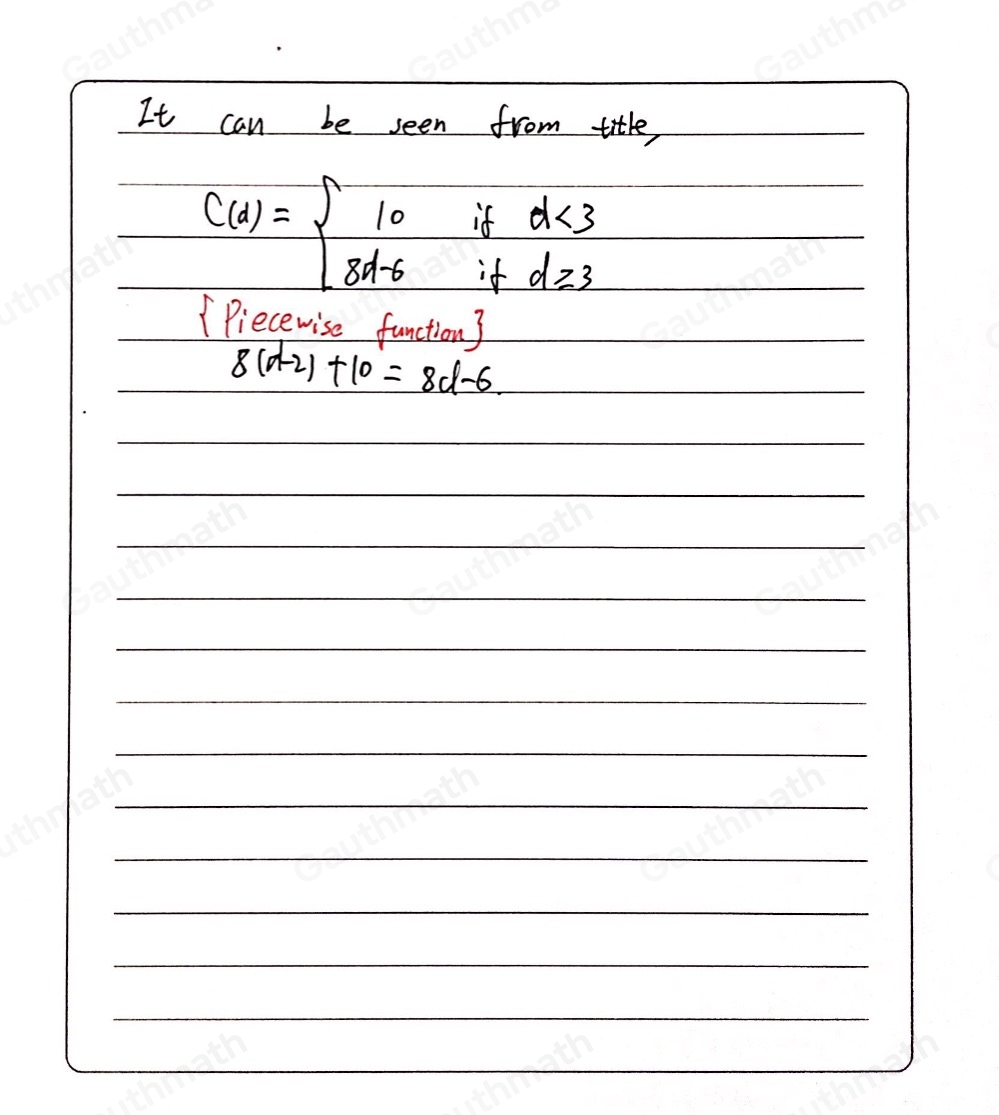 It can be seen from title,
C(d) = { 10 if d<3
8d-6 if d≥3
{Piecewise function}
8(d-2)+10 = 8d-6.
Gauthmath